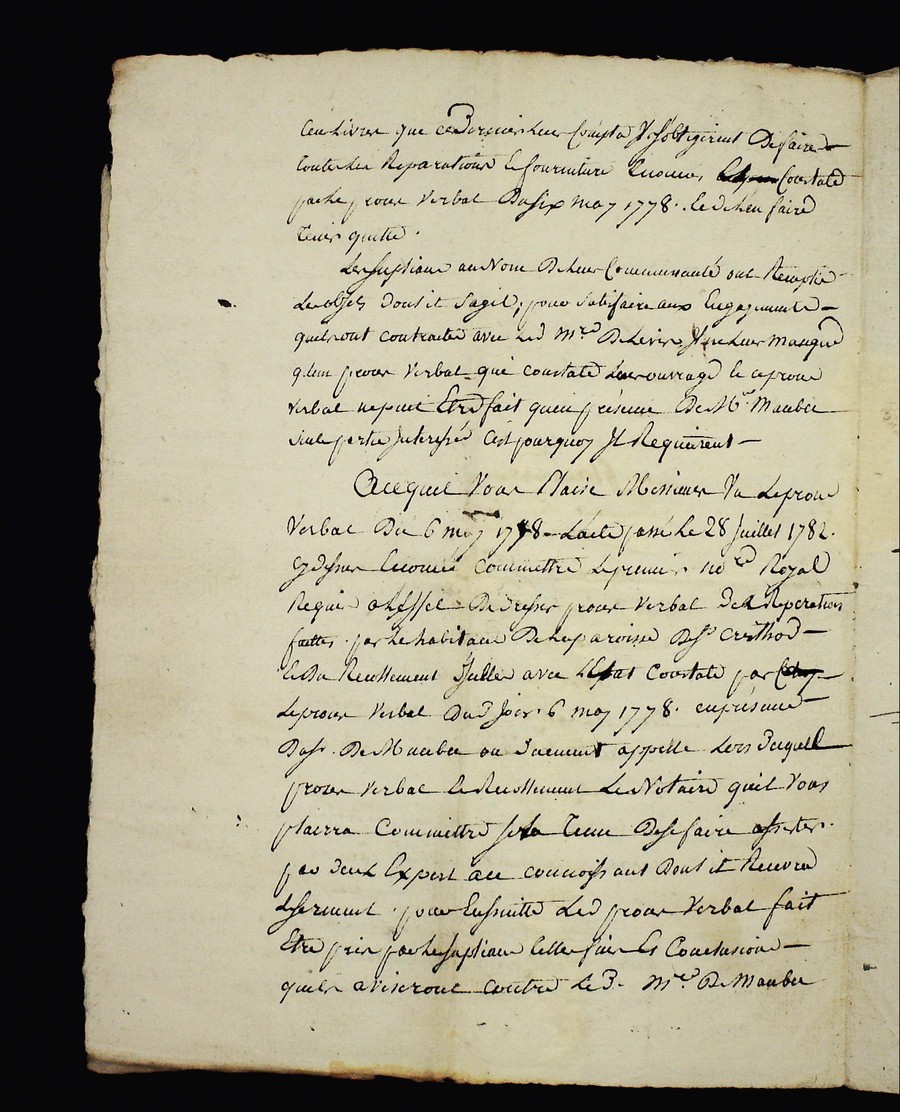 Cens Livres que ce Dernier Leur Compta Ils sobligerent De faire
toutes Les Reparations Et fournitures Enoncés Constaté
par Le proces Verbal Du six may 1778. Le d. Lieu faire
Tenir quitte.
Les supliants au Nom De Leur Communauté ont Remplis
Les objets Dont il Sagit, pour Satisfaire aux Engagements
quils ont contractés avec Led Mre De Levis, Il ne Leur manque
qun proces Verbal qui constate Leur ouvrage Et ce proces
Verbal ne peut Etre fait quen présence De Mr Maubec
seule partie Interessée Cest pourquoy Il Requierent
Acequil Vous Plaise Messieurs Vu Le proces
Verbal Du 6 may 1778. Lacte passé Le 28 Juillet 1782.
Cydessus Enoncés commettre Le premier nore Royal
Requis a Leffet De Dresser proces Verbal Des Reparations
faittes par Les habitans De La paroisse De St Cristhod
Et Du Recollement Dicelles avec LEtat Constaté par
Le proces Verbal Dud. Jour 6 may 1778. en présence
Du Sr De Maubec ou Duement appellé Lors Duquel
proces Verbal Et Recollement Le Notaire quil Vous
plairra Commettre sera Tenu De se faire assister
par Deux Expert a ce connoissans Dont il Recevra
Le serment pour Ensuitte Led proces Verbal fait
Etre pris par Les suplians telles fins Et Conclusions
quils aviseront Contre Le d. Mre De Maubec